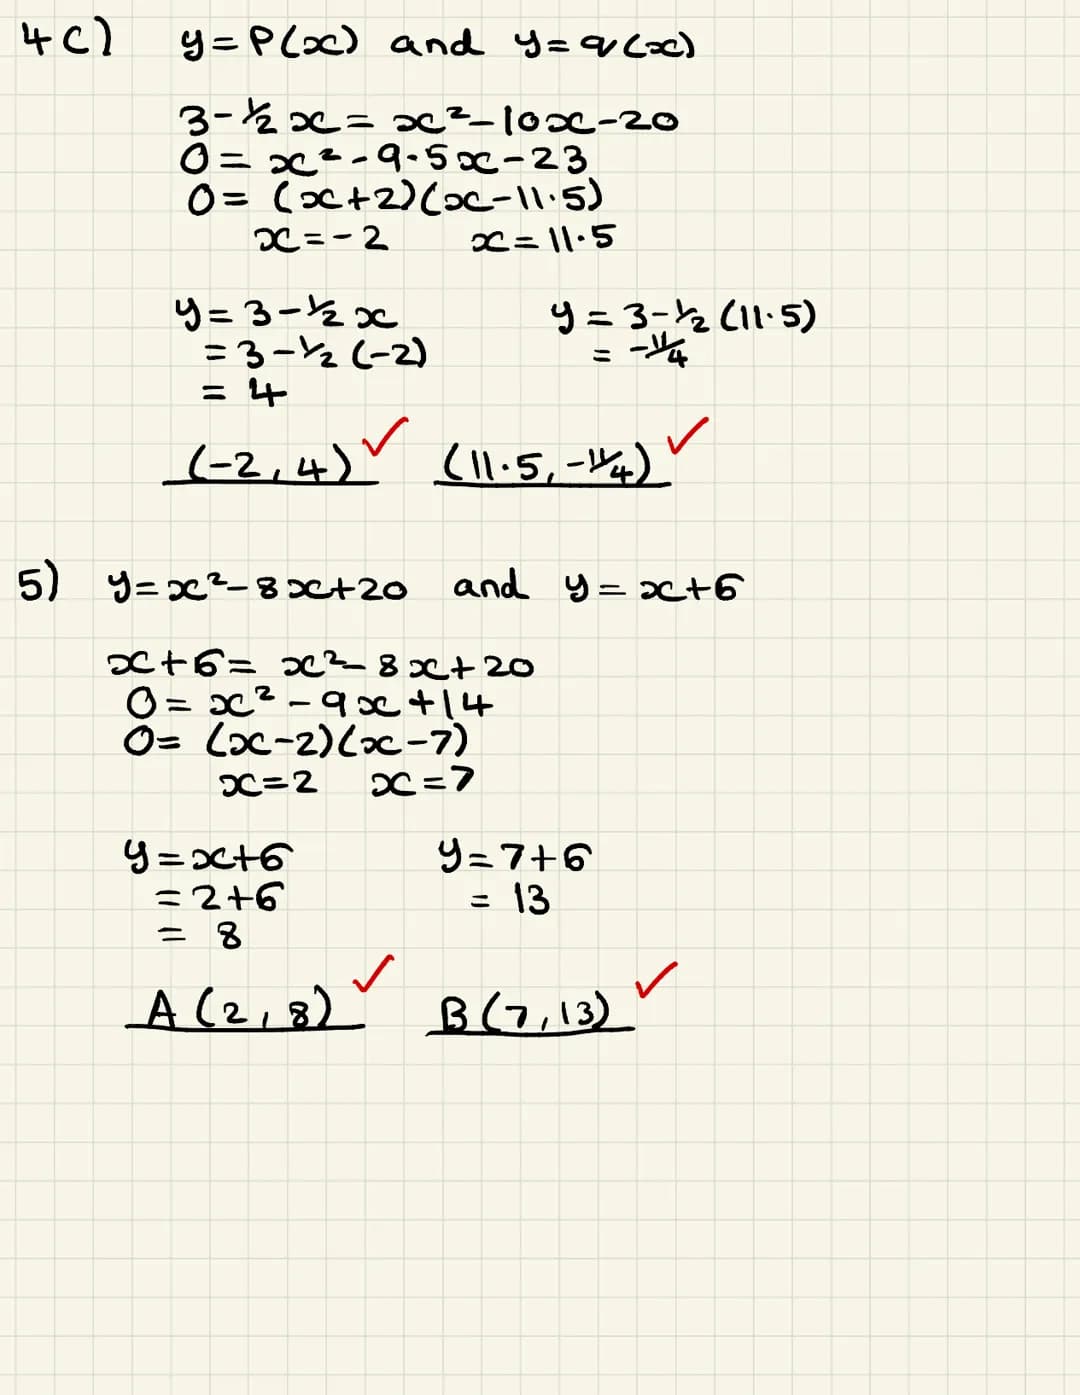 4c) y=P(x) and y=q(x)
3-½x=x²-10x-20
0=x²-9.5x-23
0=(x+2)(x-11.5)
x=-2 x=11.5
y=3-½x y=3-½(11.5)
=3-½(-2) =-11/4
=4
(-2,4)✓ (11.5,-11/4)✓
5) y=x²-8x+20 and y=x+6
x+6=x²-8x+20
0=x²-9x+14
0=(x-2)(x-7)
x=2 x=7
y=x+6 y=7+6
=2+6 =13
=8
A(2,8)✓ B(7,13)✓